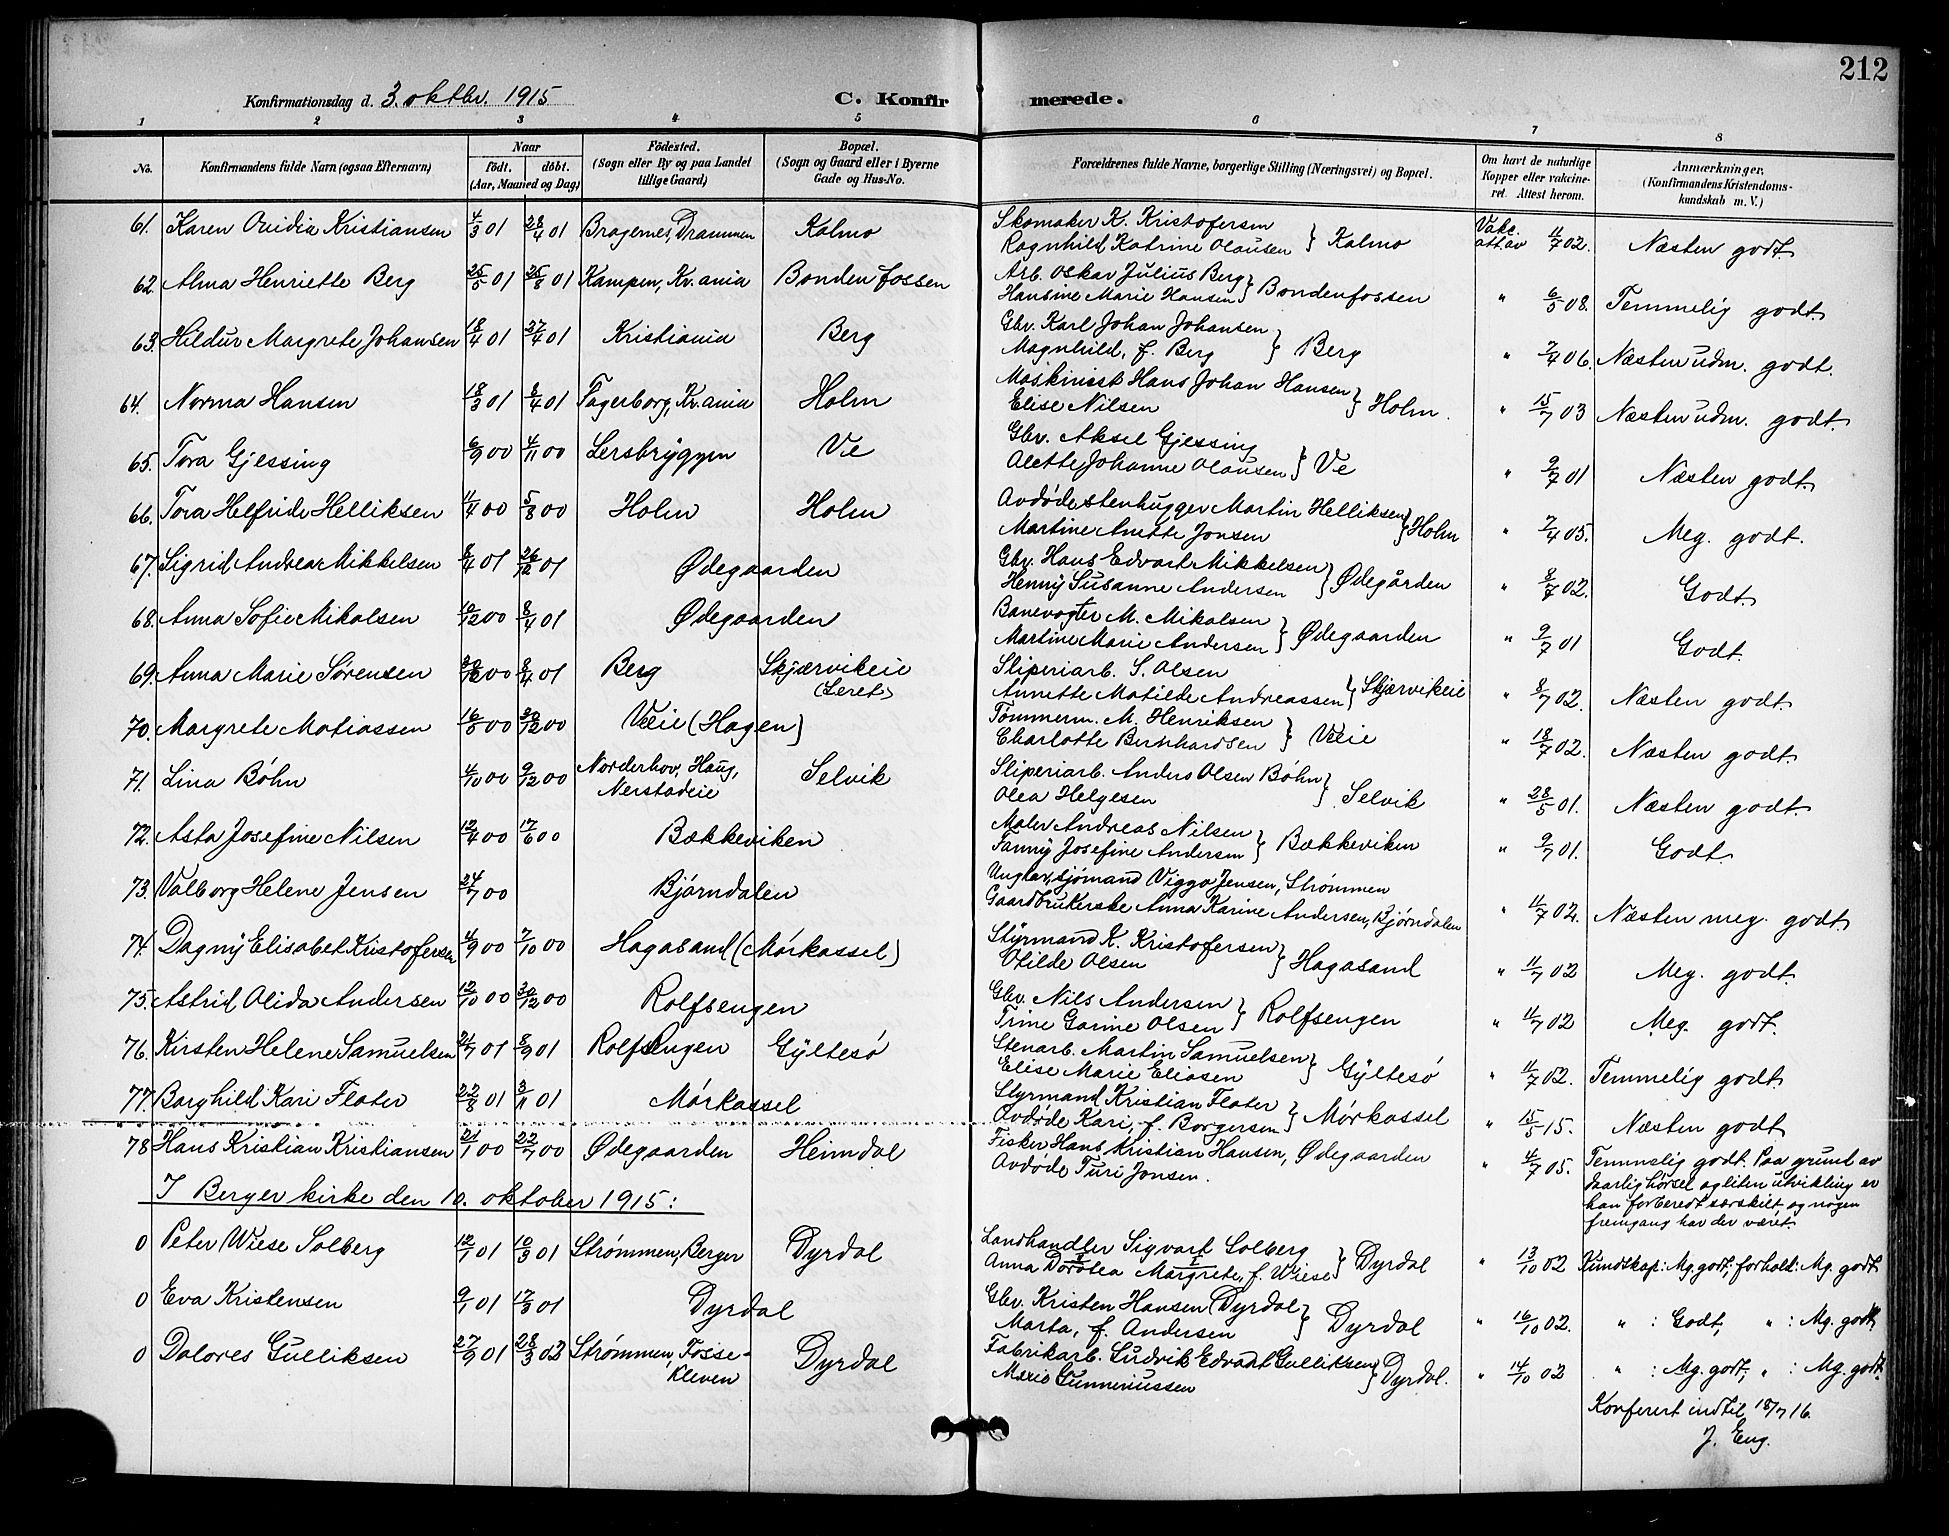 212
Konfirmationsdag d. 3. oktbr. 1915 C. Konfirmerede.
1 2 3 4 5 6 7 8
No. Konfirmandens fulde Navn (ogsaa Efternavn) Naar födt. döbt. (Aar, Maaned og Dag) Födested. (Sogn eller By og paa Landet tillige Gaard) Bopæl. (Sogn og Gaard eller i Byerne Gade og Hus-No. Forældrenes fulde Navne, borgerlige Stilling (Næringsvei) og Bopæl. Om havt de naturlige Kopper eller vakcineret. Attest herom. Anmærkninger. (Konfirmandens Kristendomskundskab m. V.)
61. Karen Ovidia Kristiansen 4/3 01 28/4 01 Bragernes, Drammen Kalmo Skomaker K. Kristofersen Ragnhild Katrine Olausen } Kalmo Vakc. att. av 11/7 02. Næsten godt
62. Alma Henriette Berg 25/5 01 25/8 01 Kampen, Kr.ania Bondenfossen Arb. Oskar Julius Berg Hansine Marie Hansen } Bondenfossen " 6/5 08. Temmelig godt.
63. Hildur Margrete Johansen 18/4 01 27/4 01 Kristiania Berg Gbr. Karl Johan Johansen Magnhild, f. Berg } Berg " 7/4 06. Næsten udm. godt.
64. Norma Hansen 18/3 01 8/4 01 Fagerborg, Kr.ania Holm Maskinist Hans Johan Hansen Elise Nilsen } Holm. " 15/7 03 Næsten udm. godt.
65. Tora Gjessing 6/9 00 4/11 00 Lersbryggen Ve Gbr. Aksel Gjessing Alette Johanne Olausen } Ve " 9/7 01 Næsten godt.
66. Tora Helfride Helliksen 11/4 00 5/8 00 Holm Holm Avdøde stenhugger Martin Helliksen Martine Anette Jonsen } Holm " 7/4 05. Meg. godt.
67. Sigrid Andrea Mikkelsen 8/4 01 26/12 01 Ødegaarden Gbr. Hans Edvart Mikkelsen Henny Susanne Andersen } Ødegården " 8/7 02. Godt.
68. Anna Sofie Mikalsen 10/12 00 8/4 01 Ødegaarden Banevogter M. Mikalsen Martine Marie Andersen } Ødegaarden " 9/7 01 Godt.
69. Anna Marie Sørensen 00 8/4 01 Berg Skjærvikeie (Leret) Sliperiarb. S. Olsen Annette Matilde Andreassen } Skjærvikeie " 8/7 02. Næsten godt.
70. Margrete Matiassen 16/5 00 30/12 00 Væie (Hagen) Tømmerm. M. Henriksen Charlotte Bernhardsen } Væie " 18/7 02. Næsten godt
71. Lina Bøhn 4/10 00 9/12 00 Norderhov, Haug, Nerstadeie Selvik Sliperiarb. Anders Olsen Bøhn Olea Helgesen } Selvik " 28/5 01. Næsten godt.
72. Asta Josefine Nilsen 12/4 00 17/6 00 Bækkeviken Maler Andreas Nilsen Fanny Josefine Andersen } Bækkeviken " 9/7 01. Godt
73. Valborg Helene Jensen 24/7 00 Bjørndalen Ungkar, sjømand Viggo Jensen, Strømmen Gaardbrukerske Anna Karine Andersen, Bjørndalen " 11/7 02. Næsten meg. godt
74. Dagny Elisabet Kristofersen 4/9 00 7/10 00 Hagasand (Mørkassel) Styrmand K. Kristofersen Otilde Olsen } Hagasand " 11/7 02 Meg. godt.
75. Astrid Alida Andersen 12/10 00 30/12 00 Rolfsengen Gbr. Nils Andersen Trine Garine Olsen } Rolfsengen " 11/7 02 Meg. godt.
76. Kirsten Helene Samuelsen 21/7 01 8/9 01 Rolfsengen Gyltesø Stenarb. Martin Samuelsen Elise Marie Eliasen } Gyltesø " 11/7 02. Temmelig godt.
77. Borghild Kari Flater 22/8 01 3/11 01 Mørkassel Styrmand Kristian Flater Avdøde Kari, f. Borgersen } Mørkassel " 15/5 15. Næsten godt
78 Hans Kristian Kristiansen 21/1 00 22/7 00 Ødegaarden Heimdal Fisker Hans Kristian Hansen, Ødegaarden Avdøde Turi Jonsen. " 4/7 05. Temmelig godt. Paa grund av daarlig hørsel og liten utvikling er han forberedt særskilt og nogen fremgang har der været.
I Berger kirke den 10. oktober 1915:
0 Peter Wiese Solberg 12/1 01 10/3 01 Strømmen, Berger Dyrdal Landhandler Sigvart Solberg Anna Dorotea Margrete, f. Wiese } Dyrdal " 13/10 02 Kundskap: Mg. godt; forhold: Mg. godt
0 Eva Kristensen 9/1 01 17/3 01 Dyrdal Gbr. Kristen Hansen (Dyrdal Marta, f. Andersen } Dyrdal " 16/10 02. " : Godt, " : Mg. godt
0 Dolores Gulliksen 27/9 01 28/3 02 Strømmen, Fossekleven Dyrdal Fabrikarb. Ludvik Edvart Gulliksen Marie Gunneriussen } Dyrdal. " 14/10 02 " : Mg. godt, " : Mg. godt.
Konferert indtil 18/7 16.
J. Eng.